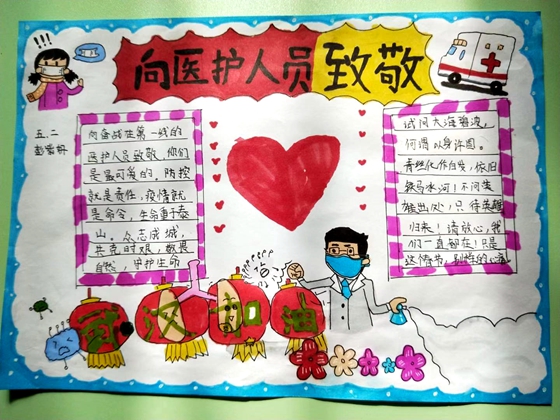 向医护人员致敬
!!!
五、二
向奋战在第一线的
医护人员致敬,你们
是最可爱的,防控
就是责任,疫情就
是命令,生命重于泰
山。众志成城,
共克时艰,敬畏
自然,守护生命
试问大海碧波,
何谓以身许国。
青丝化作白发,依旧
铁马冰河!不问英
雄出处,只待英雄
归来!请放心,我
们一直都在!只是
这情节,别样的
武汉加油